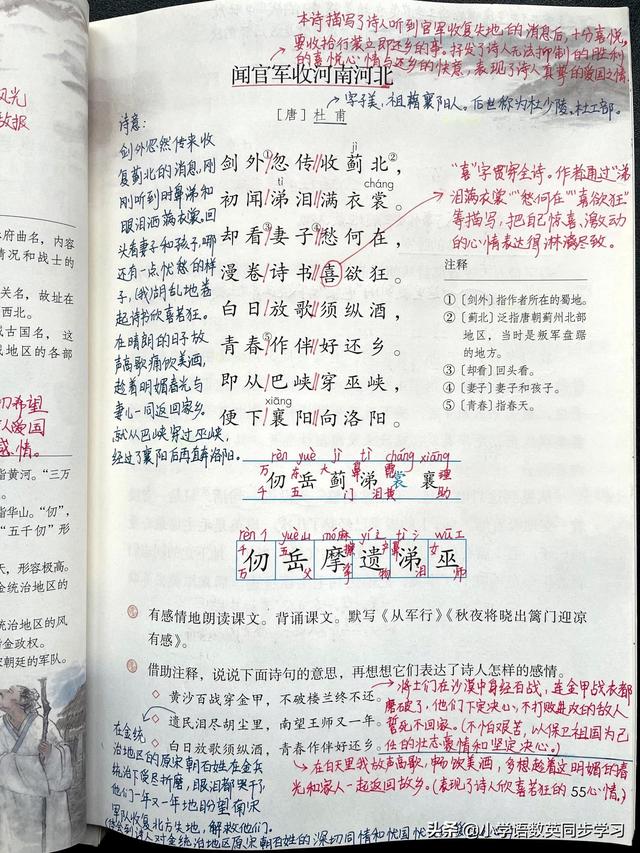 本诗描写了诗人听到官军收复失地的消息后,十分喜悦,
要收拾行装立即还乡的事。抒发了诗人无法抑制的胜利
的喜悦心情与还乡的快意,表现了诗人真挚的爱国之情。
闻官军收河南河北
字子美,祖籍襄阳人。后世称为杜少陵、杜工部。
[唐] 杜甫
诗意:
剑外忽然传来收
复蓟北的消息,刚
刚听到时鼻涕和
眼泪洒满衣裳。回
头看妻子和孩子,哪
还有一点忧愁的样
子,(我)胡乱地卷
起诗书欣喜若狂。
在晴朗的日子放
声高歌痛饮美酒,
趁着明媚春光与
妻儿一同返回家乡。
就从巴峡穿过巫峡,
经过了襄阳后再直奔洛阳。
jì
剑外①忽传收蓟北②,
tì cháng
初闻涕泪满衣裳。
却看③妻子④愁何在,
漫卷诗书喜欲狂。
白日放歌须纵酒,
青春⑤作伴好还乡。
即从巴峡穿巫峡,
xiāng
便下襄阳向洛阳。
“喜”字贯穿全诗。作者通过“涕
泪满衣裳”“愁何在”“喜欲狂”
等描写,把自己惊喜、激动
的心情表达得淋漓尽致。
注释
①〔剑外〕指作者所在的蜀地。
②〔蓟北〕泛指唐朝蓟州北部
地区,当时是叛军盘踞
的地方。
③〔却看〕回头看。
④〔妻子〕妻子和孩子。
⑤〔青春〕指春天。
rèn yuè jì tì cháng xiāng
仞岳蓟涕裳襄
rèn yuè mó yí tì wū
仞岳摩遗涕巫
有感情地朗读课文。背诵课文。默写《从军行》《秋夜将晓出篱门迎凉
有感》。
借助注释,说说下面诗句的意思,再想想它们表达了诗人怎样的感情。
◇ 黄沙百战穿金甲,不破楼兰终不还。
◇ 遗民泪尽胡尘里,南望王师又一年。
◇ 白日放歌须纵酒,青春作伴好还乡。
将士们在沙漠中身经百战,连金甲战衣都
磨破了,他们下定决心,不打败进攻的敌人
誓死不回家。(不怕艰苦,以保卫祖国为己
任的壮志豪情和坚定决心。)
在白天里我放声高歌,畅饮美酒,多想趁着这明媚的春
光和家人一起返回故乡。(表现了诗人欣喜若狂的心情。)
55
在金统
治地区的原宋朝百姓在金兵
统治下受尽折磨,眼泪都哭干了,
他们一年又一年地盼望南宋
军队收复北方失地,解救他们。
头条@小学语数英同步学习
府曲名,内容
情况和战士的
关名,故址在
西北。
古国名,这
地区的各部
指黄河。“三万
指华山。“仞”,
“五千仞”形
天,形容极高。
金统治地区的
治地区的风
指金政权。
宋朝廷的军队。